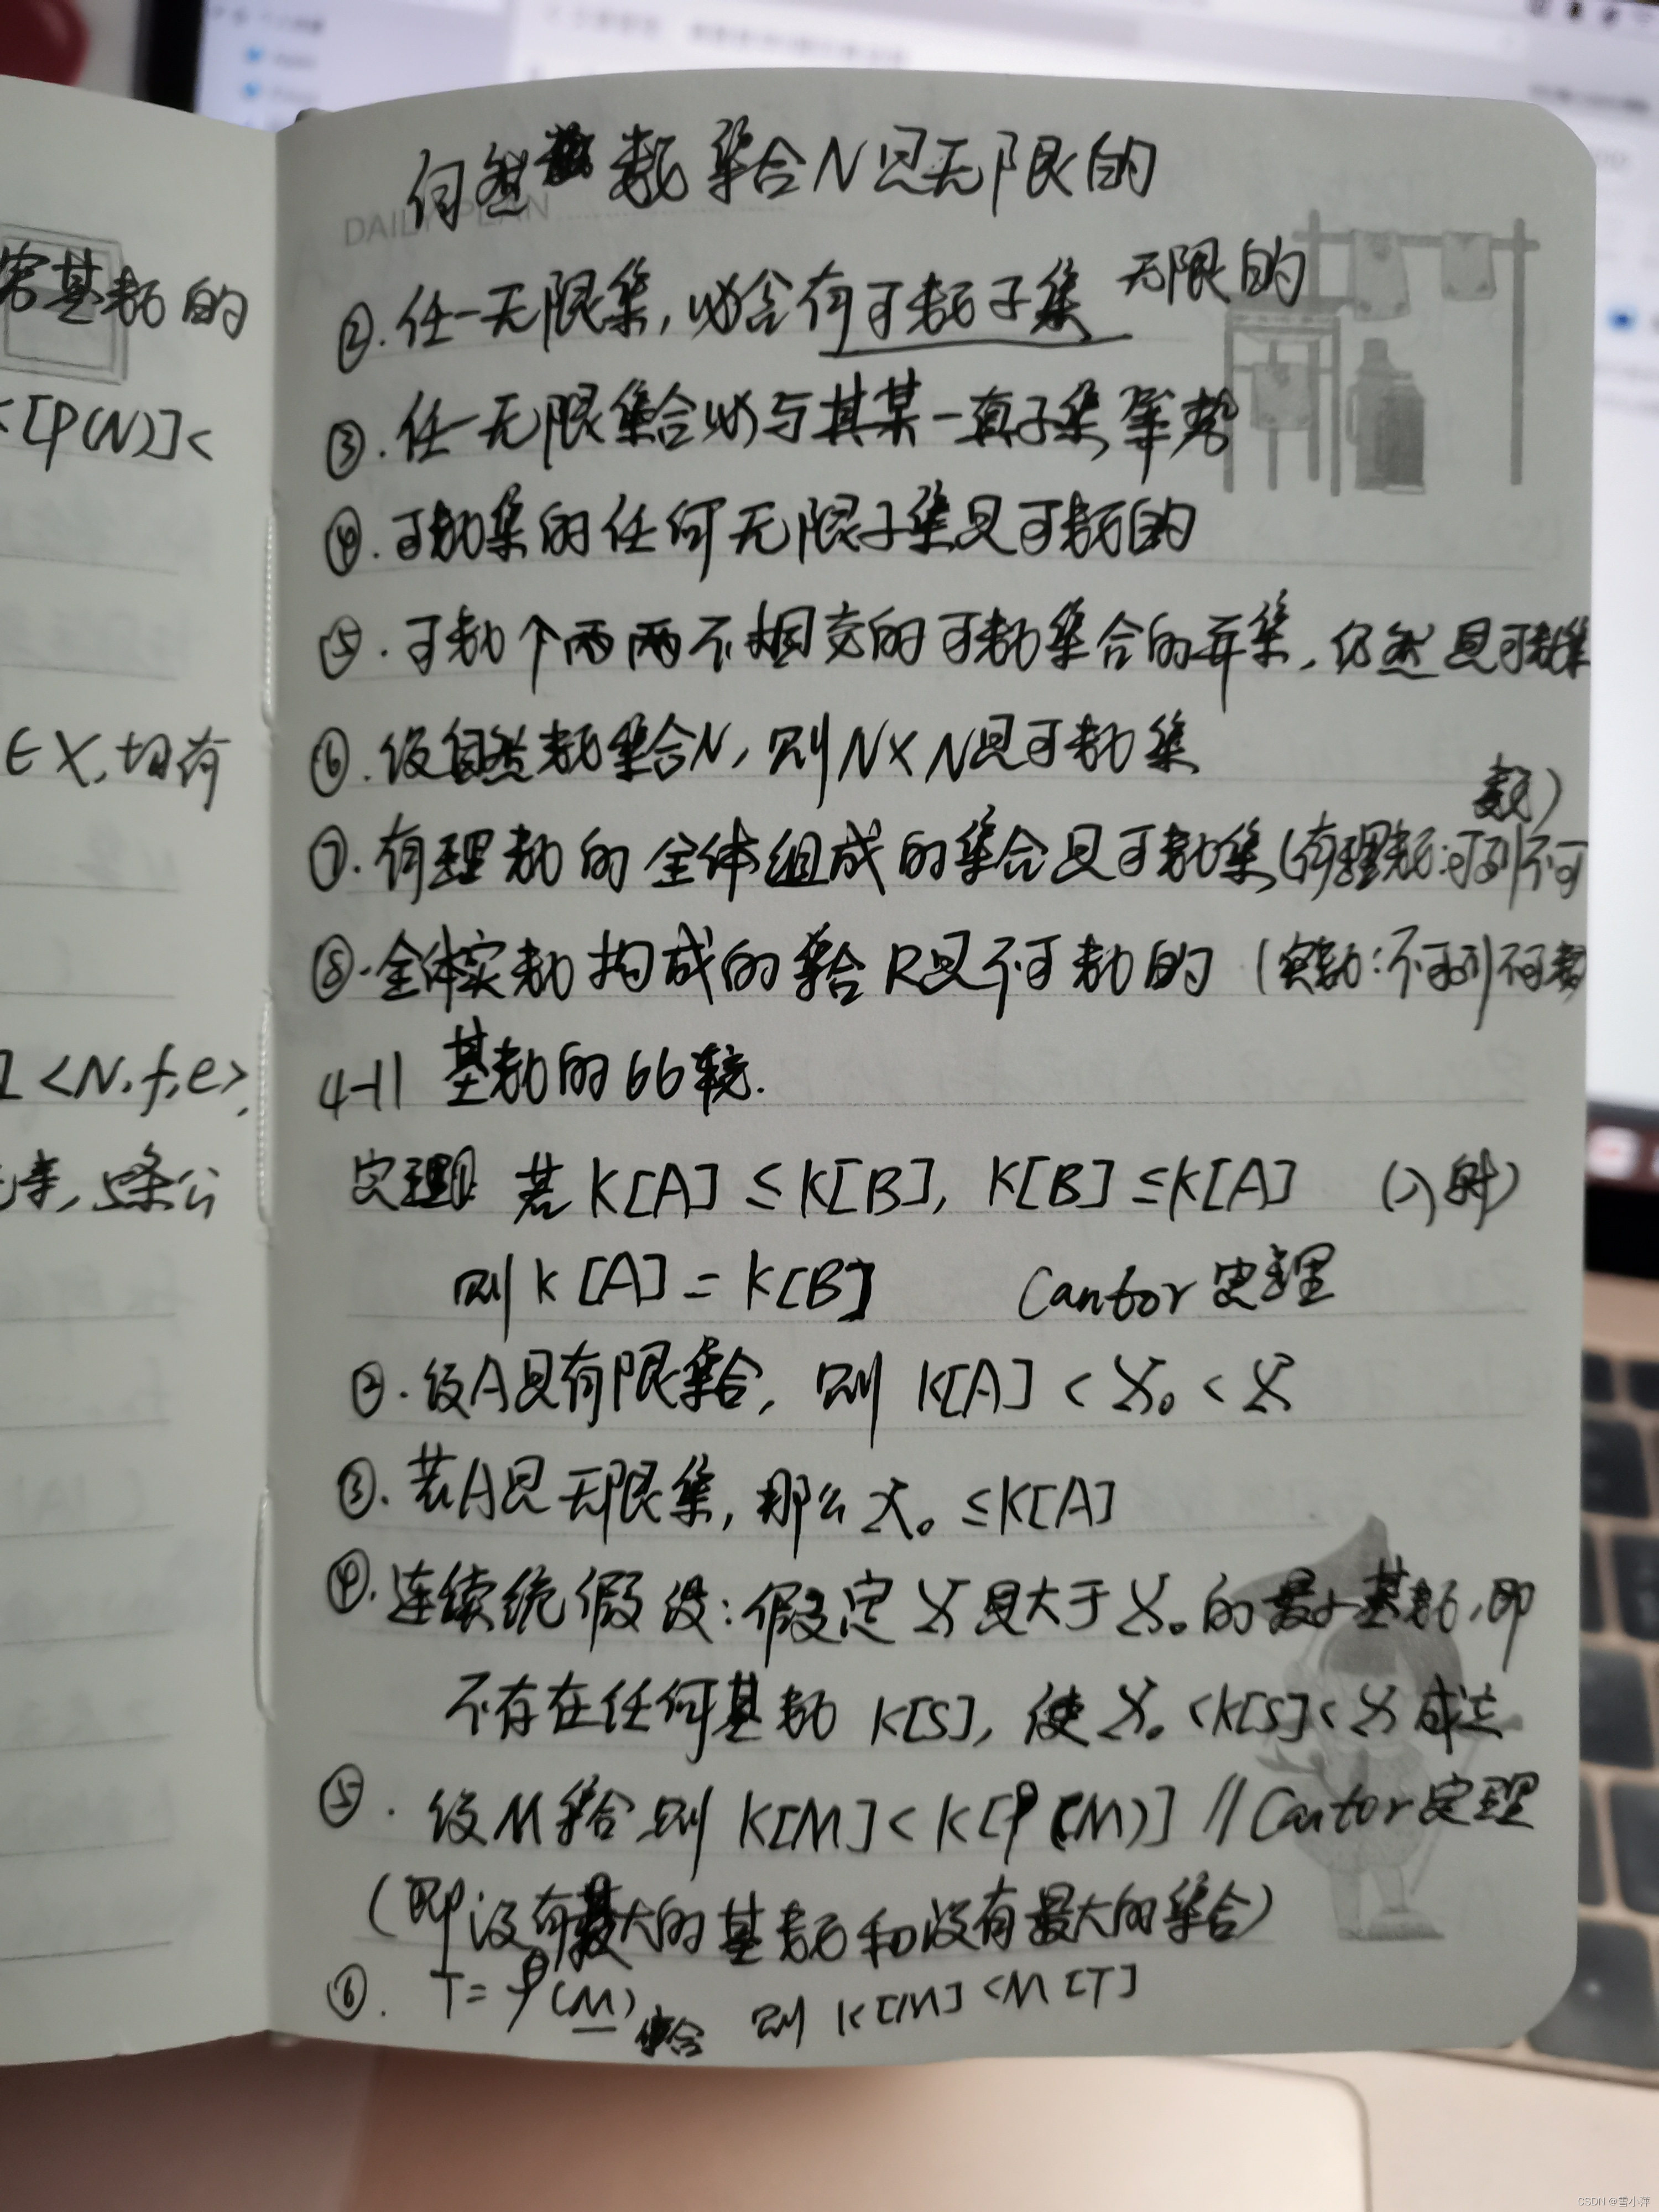 穷基数的
<[P(N)]<
∈X,均有
<N,f,e>,
DAILY PLAN
自然数集合N是无限的
②.任一无限集,必含有可数子集 无限的
③.任一无限集合必与其某一真子集等势
④.可数集的任何无限子集是可数的
⑤.可数个两两不相交的可数集合的并集,仍然是可数集
⑥.设自然数集合N,则N×N是可数集
⑦.有理数的全体组成的集合是可数集(有理数:可列不可
数)
⑧.全体实数构成的集合R是不可数的 (实数:不可列不可数
4-11 基数的比较.
定理1 若K[A]≤K[B], K[B]≤K[A] (入射)
则K[A]=K[B] Cantor定理
②.设A是有限集合,则 K[A]<ℵ₀<ℵ
③.若A是无限集,那么ℵ₀≤K[A]
④.连续统假设:假定ℵ是大于ℵ₀的最小基数,即
不存在任何基数K[S],使ℵ₀<K[S]<ℵ成立
⑤.设M集合则 K[M]<K[P(M)] //Cantor定理
(即没有最大的基数和没有最大的集合)
⑥. T=P(M) 集合 则 K[M]<M[T]
CSDN @雪小萍